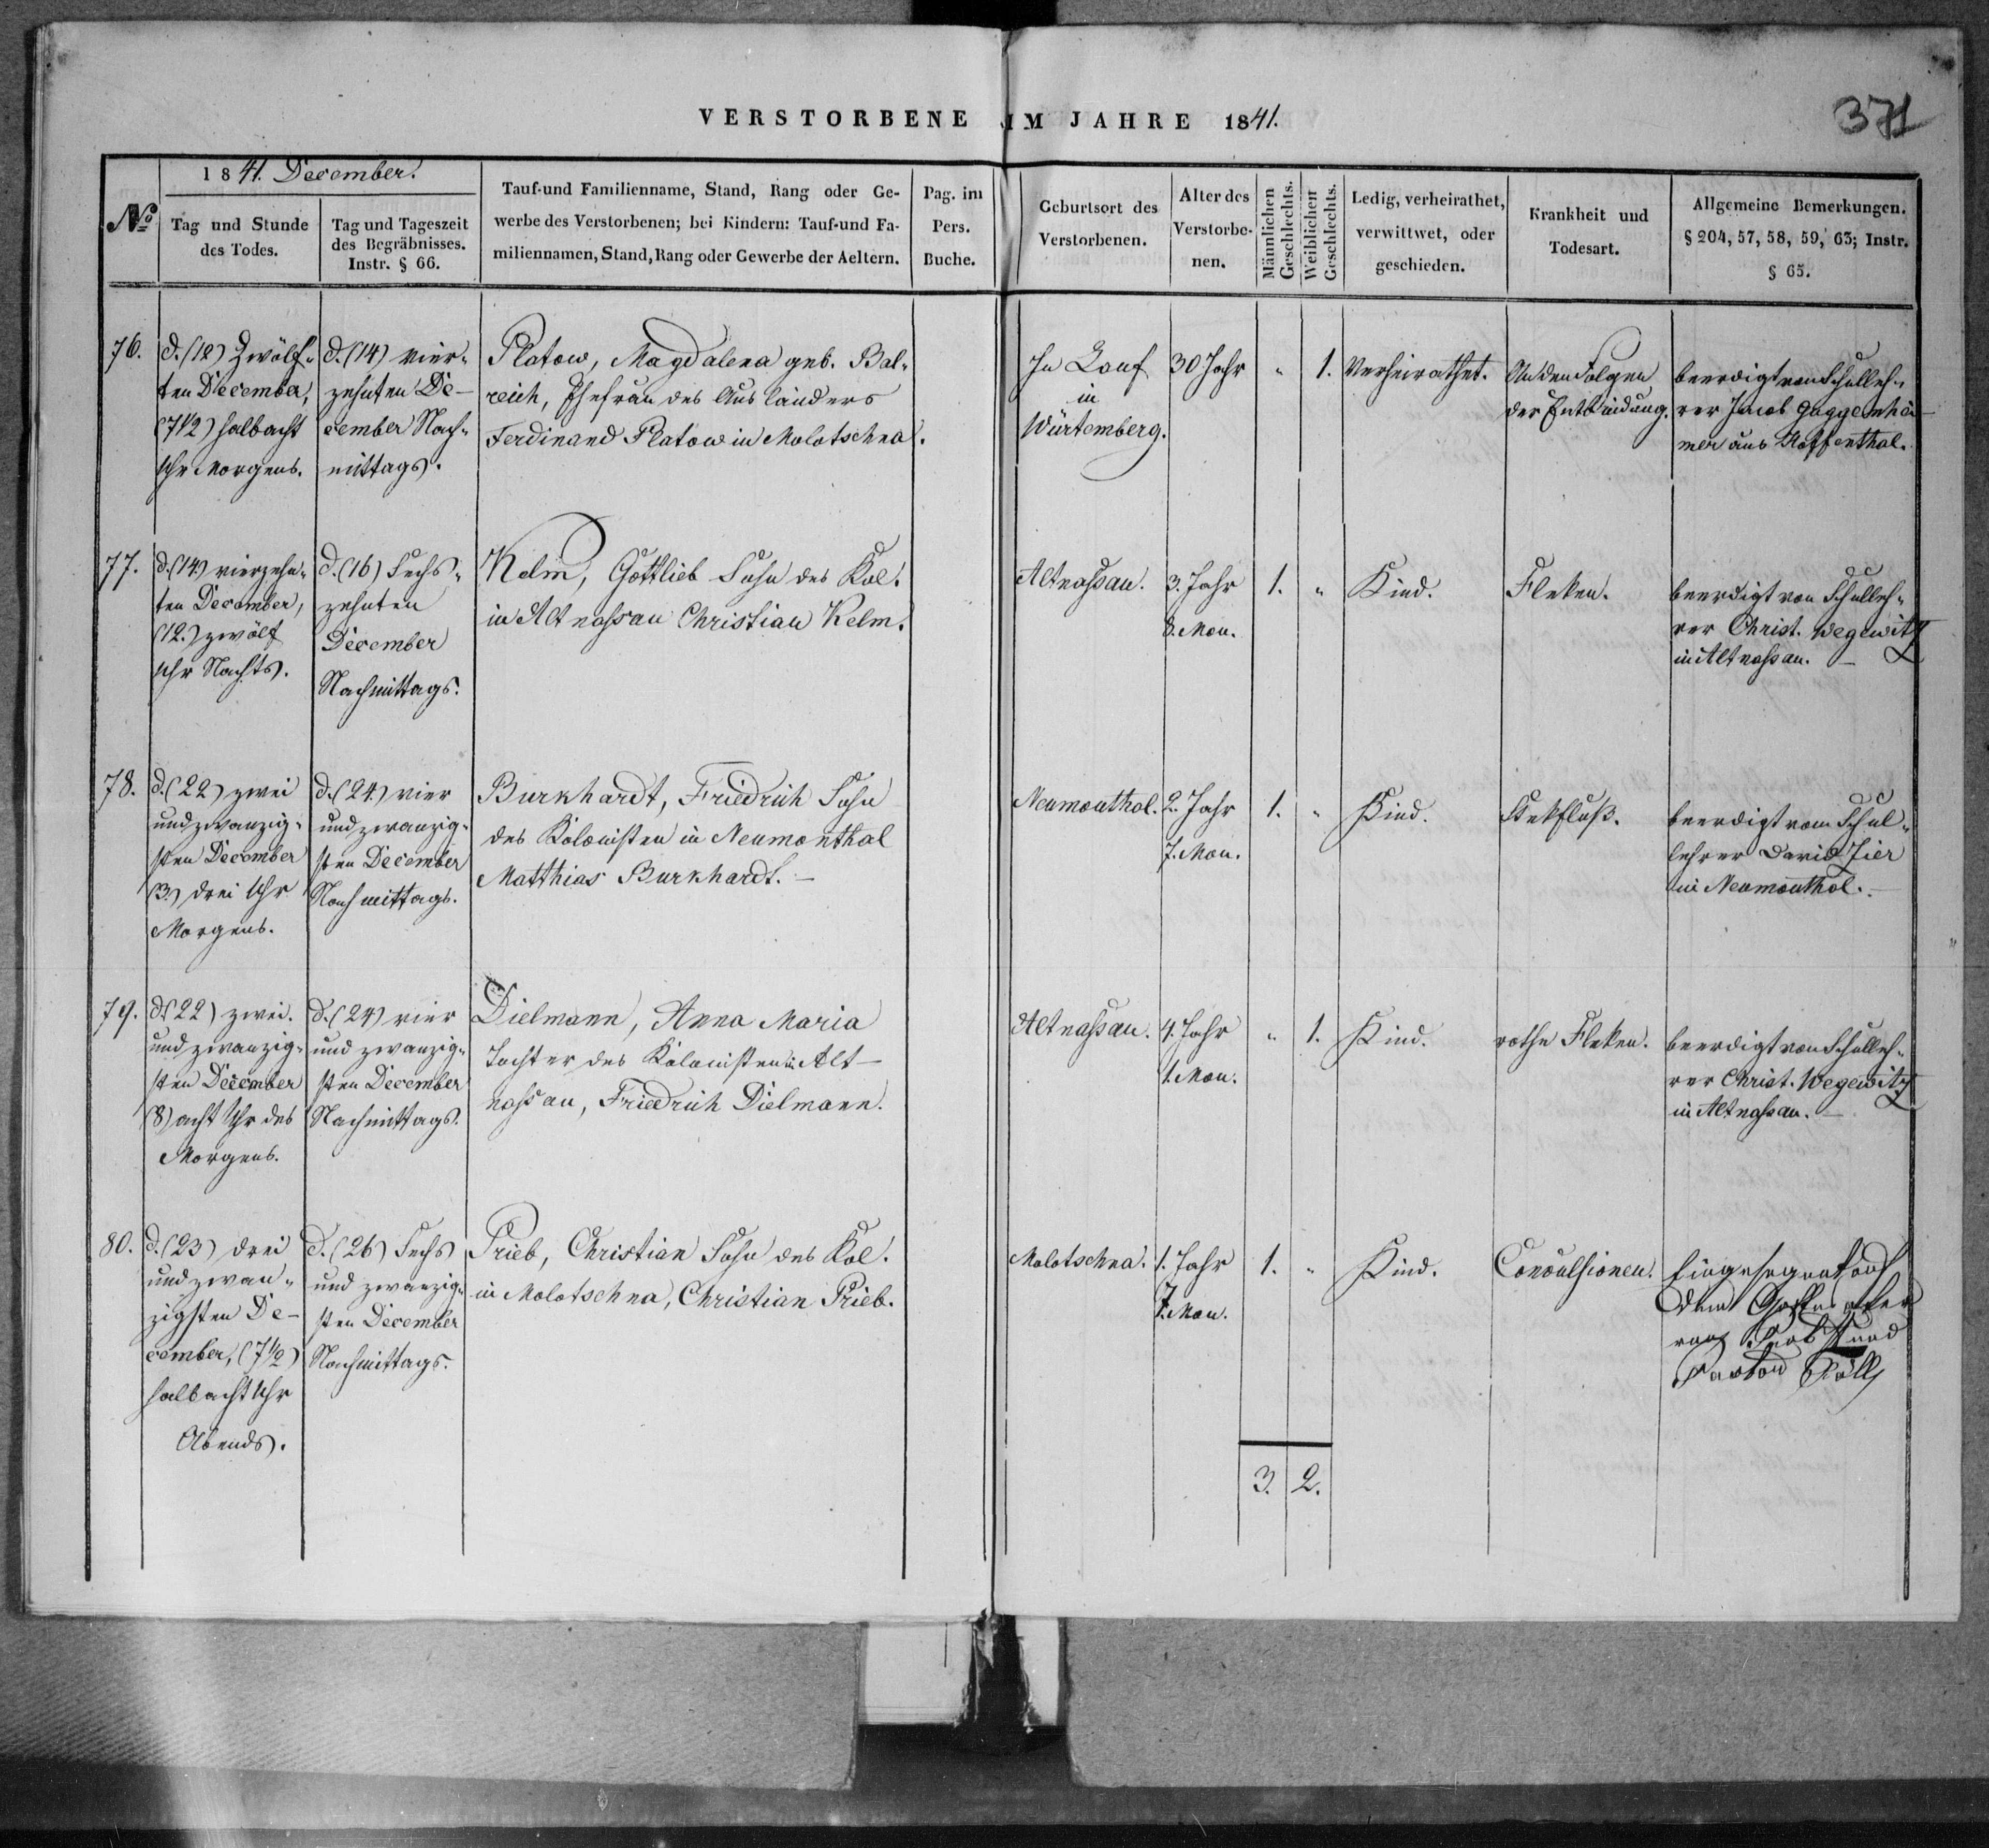 VERSTORBENE IM JAHRE 1841.
371
No
1841. December.
Tag und Stunde
des Todes.
Tag und Tageszeit
des Begräbnisses.
Instr. § 66.
Tauf-und Familienname, Stand, Rang oder Ge-
werbe des Verstorbenen; bei Kindern: Tauf-und Fa-
miliennamen, Stand, Rang oder Gewerbe der Aeltern.
Pag. im
Pers.
Buche.
Geburtsort des
Verstorbenen.
Alter des
Verstorbe-
nen.
Männlichen
Geschlechts.
Weiblichen
Geschlechts.
Ledig, verheirathet,
verwittwet, oder
geschieden.
Krankheit und
Todesart.
Allgemeine Bemerkungen.
§ 204, 57, 58, 59, 63; Instr.
§ 65.
76.
d. (12) Zwölf-
ten December,
(7 1/2) halb acht
Uhr Morgens.
d. (14) vier-
zehnten De-
cember Nach-
mittags.
Platow, Magdalena geb. Bal-
reich, Ehefrau des Ausländers
Ferdinand Platow in Molotschna.
In Lauf
in
Würtemberg.
30 Jahr
"
1.
Verheirathet.
An den Folgen
der Entbindung.
beerdigt von Schulleh-
rer Jacob Guggemhei-
mer aus Hoffenthal.
77.
d. (14) vierzehn-
ten December,
(12.) zwölf
Uhr Nachts.
d. (16) Sechs-
zehnten
December
Nachmittags.
Kelm, Gottlieb Sohn des Kol.
in Altnaßau Christian Kelm.
Altnaßau.
3. Jahr
8. Mon.
1.
"
Kind.
Fleken.
beerdigt von Schulleh-
rer Christ. Wegewitz
in Altnaßau. –
78.
d. (22) zwei
und zwanzig-
sten December
(3.) drei Uhr
Morgens.
d. (24.) vier
und zwanzig-
sten December
Nachmittags.
Burkhardt, Friedrich Sohn
des Kolonisten in Neumonthal
Matthias Burkhardt. –
Neumonthal.
2. Jahr
7. Mon.
1.
"
Kind.
Stekfluß.
beerdigt vom Schul-
lehrer David Zier
in Neumonthal. –
79.
d. (22) zwei-
und zwanzig-
sten December
(8) acht Uhr des
Morgens.
d. (24) vier
und zwanzig-
sten December
Nachmittags.
Dielmann, Anna Maria
Tochter des Kolonisten in Alt-
naßau, Friedrich Dielmann.
Altnaßau.
4. Jahr
1. Mon.
"
1.
Kind.
rothe Fleken.
beerdigt von Schulleh-
rer Christ. Wegewitz
in Altnaßau. –
80.
d. (23) drei
und zwan-
zigsten De-
cember, (7 1/2)
halb acht Uhr
Abends.
d. (26) Sechs
und zwanzig-
sten December
Nachmittags.
Prieb, Christian Sohn des Kol.
in Molotschna, Christian Prieb.
Molotschna.
1. Jahr
7. Mon.
1.
"
Kind.
Convulsionen.
Eingesegnet auf
dem Gottesaker
Pastor
3.
2.